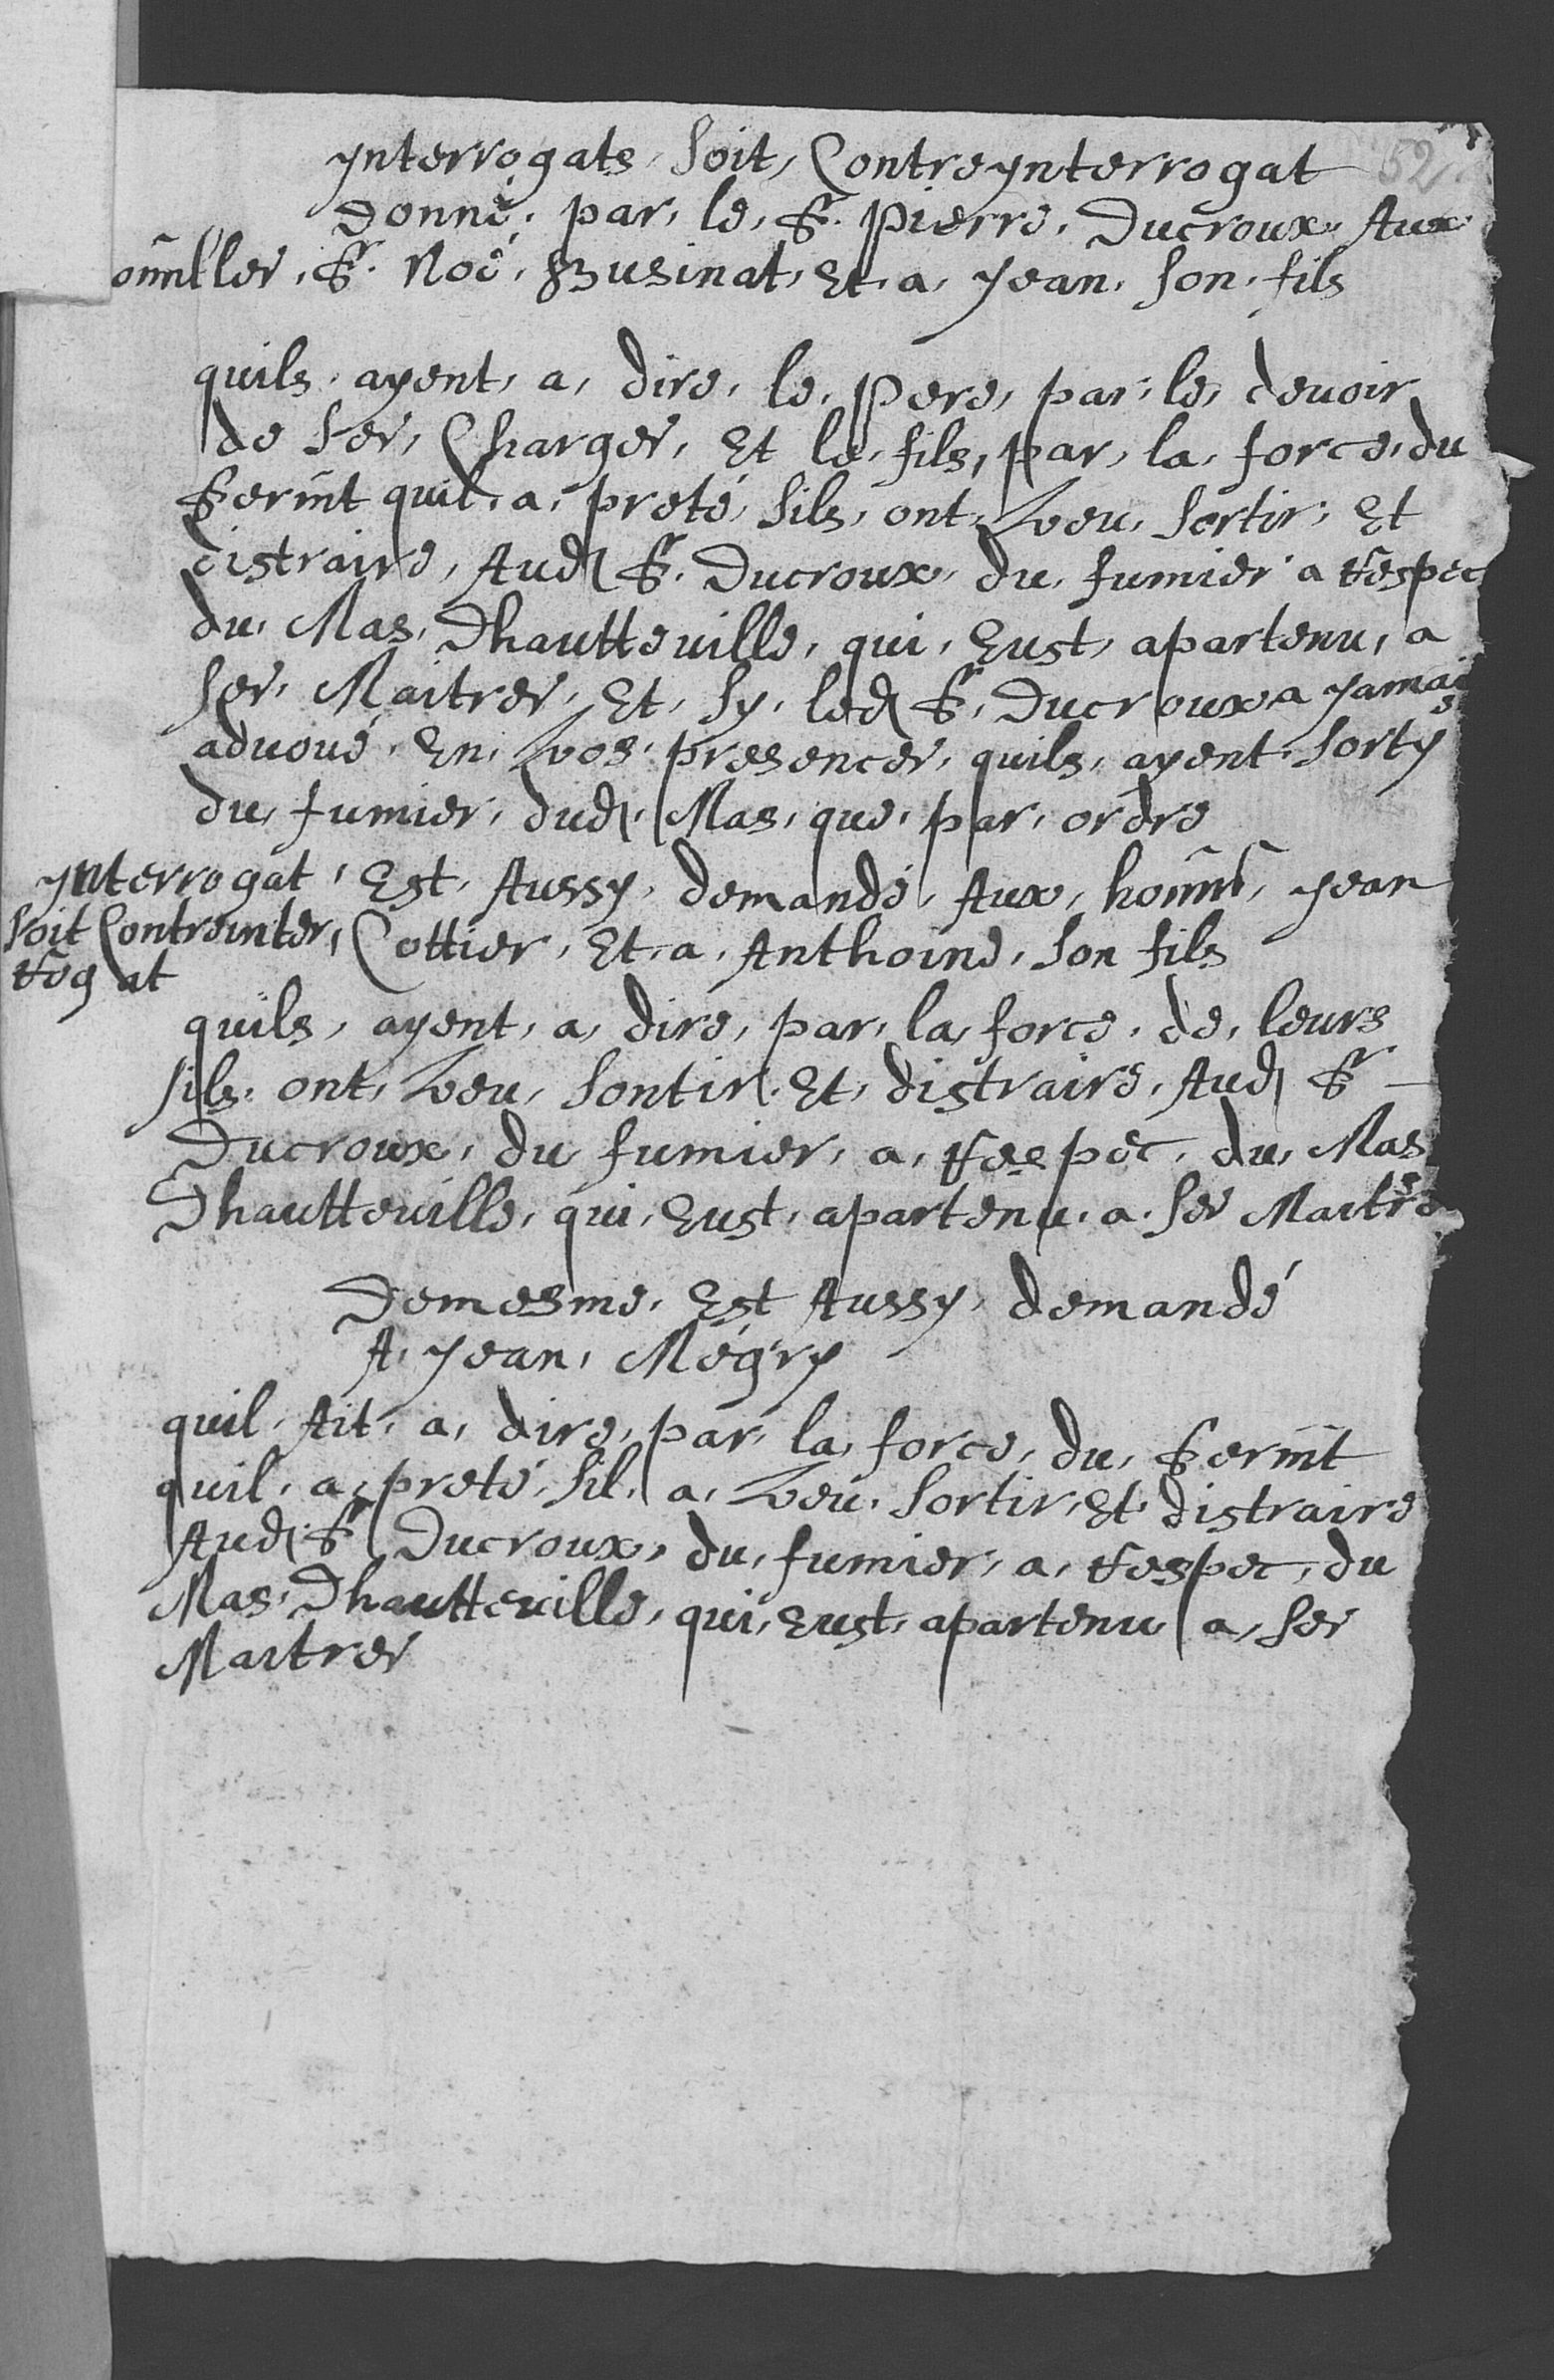 52
ynterrogats, soit, Contreynterrogat
Donné, par, le, Sr. Pierre, Ducroux, Aux
Sr. Noé, Businat, Et, a, Jean, son, fils
quils, ayent, a, dire, le, Pere, par, le, devoir
de ses, Charges, Et le, fils, par, la, force, du
Sermt quil, a, preté, sils, ont, veu, sortir, Et
distraire, Aud Sr. Ducroux, du, fumier a Respec
du, Mas, Dhautteville, qui, Eust, apartenu, a
ses, Maitres, Et, sy, led Sr. Ducroux a Jamais
advoué, En, vos, presences, quils, ayent, sorty
du, fumier, dud, Mas, que, par, ordre
ynterrogat
soit Contreinter,
rogat
Est, Aussy, demandé, Aux, Jean
Cottier, Et, a, Anthoine, son fils
quils, ayent, a, dire, par, la, force, de, leurs
sils, ont, veu, sontir, Et, distraire, Aud Sr
Ducroux, du fumier, a, Respec, du, Mas
Dhautteville, qui, Eust, apartenu, a, ses Maitres
Demesme, Est Aussy, demandé
A, Jean, Mégry
quil, Ait, a, dire, par, la, force, du, Sermt
quil, a, preté, sil, a, veu, sortir, Et distraire
Aud Sr Ducroux, du, fumier, a, Respec, du
Mas, Dhautteville, qui, Eust, apartenu, a, ses
Maitres